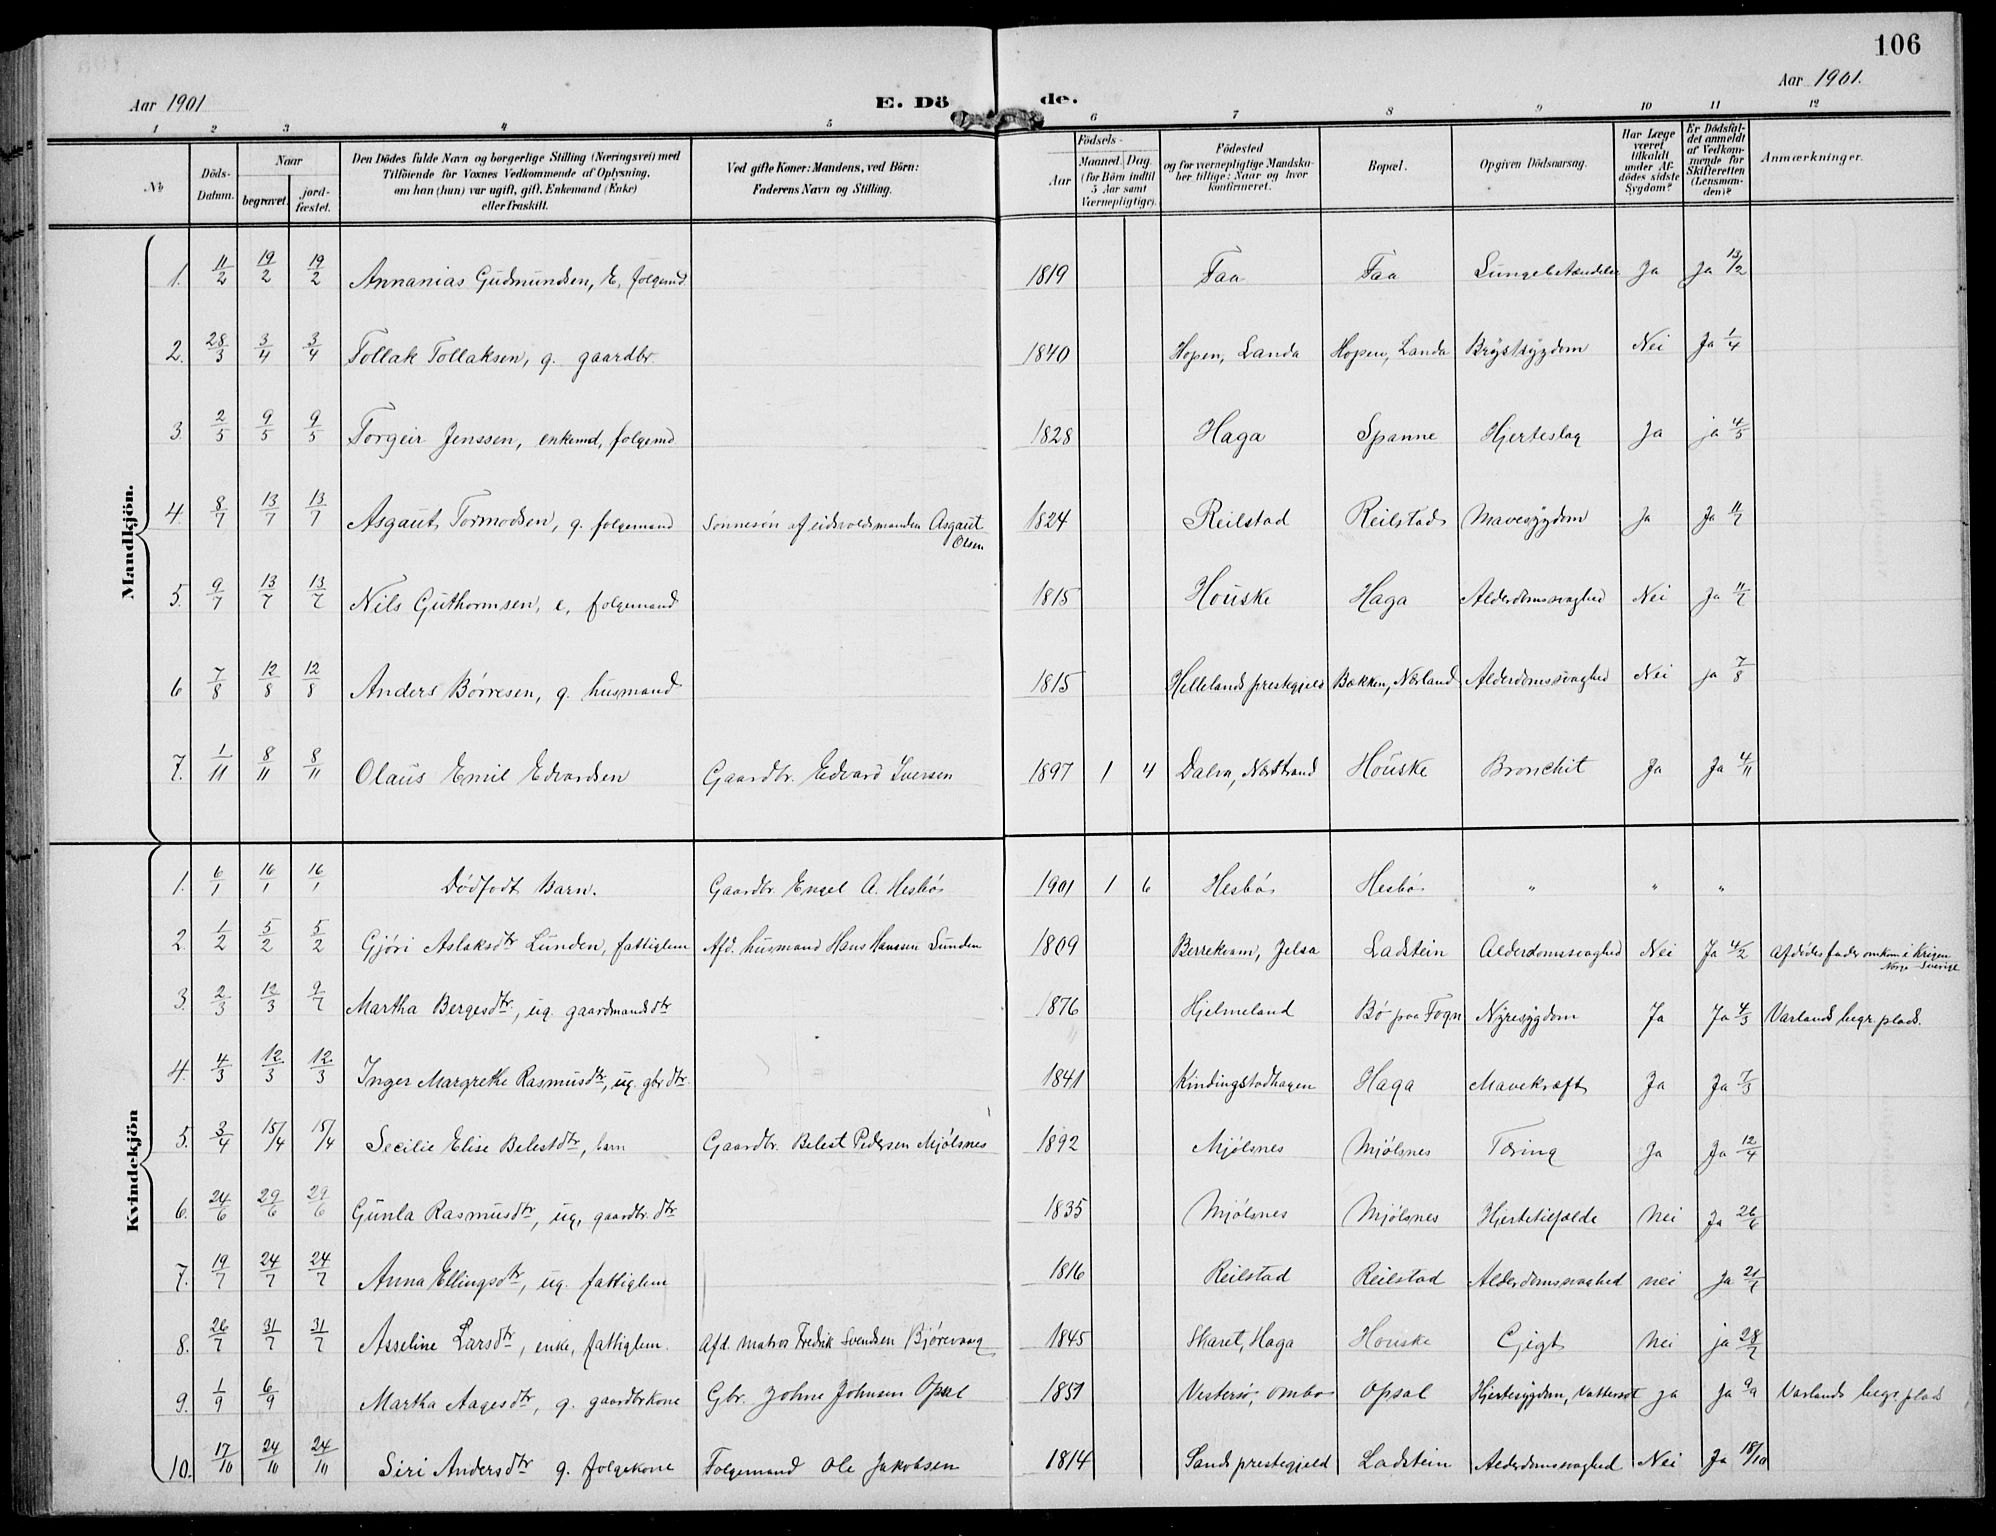 106
Aar 1901
E. Döde.
Aar 1901.
1 2 3 4 5 6 7 8 9 10 11 12
No
Döds-Datum.
Naar
begravet.
jord-fæstet.
Den Dödes fulde Navn og borgerlige Stilling (Næringsvei) med
Tilföiende for Voxnes Vedkommende af Oplysning,
om han (hun) var ugift, gift, Enkemand (Enke)
eller fraskilt.
Ved gifte Koner: Mandens, ved Börn:
Faderens Navn og Stilling.
Födsels-
Aar
Maaned. Dag.
(for Börn indtil
5 Aar samt
Værnepligtige).
Födested
og for værnepligtige Mandska-
ber tillige: Naar og hvor
konfirmeret.
Bopæl.
Opgiven Dödsaarsag.
Har Læge
været
tilkaldt
under Af-
dödes sidste
Sygdom?
Er Dödsfal-
det anmeldt
af Vedkom-
mende for
Skifteretten
(Lensman-
den)?
Anmærkninger.
Mandkjön.
1. 11/2 19/2 19/2 Annanias Gudmundsen, E, folgemd. 1819 Faa Faa Lungebetændelse Ja Ja 13/2
2. 28/3 3/4 3/4 Tollak Tollaksen, g. gaardbr. 1840 Hopen, Landa Hopen, Landa Brystsygdom Nei Ja 1/4
3. 2/5 9/5 9/5 Torgeir Jenssen, enkemd, folgemd 1828 Haga Spanne Hjerteslag Ja ja 4/5
4. 8/7 13/7 13/7 Asgaut Tormodsen, g. folgemand Sønnesøn af eidsvoldsmanden Asgaut Olsen 1824 Reilstad Reilstad Mavesygdom Ja Ja 11/7
5. 9/7 13/7 13/7 Nils Guthormsen, e, folgemand 1815 Houske Haga Alderdomssvaghed Nei Ja 11/7
6 7/8 12/8 12/8 Anders Børresen, g. husmand 1815 Hellelands prestegjeld Bakken, Nærland Alderdomssvaghed Nei ja 7/8
7. 1/11 8/11 8/11 Olaus Emil Edvardsen Gaardbr. Edvard Iversen 1897 1 4 Dalva, Nordstrand Houske Bronchit Ja Ja 4/11
Kvindekjön
1. 6/1 16/1 16/1 Dødfødt Barn. Gaardbr. Engel A. Hesbø 1901 1 6 Hesbø Hesbø " " "
2. 1/2 5/2 5/2 Gjøri Aslaksdtr Lunden, fattiglem Afd. husmand Hans Hanssen Lunden 1809 Berrekvam, Jelsa Ladstein Alderdomssvaghed Nei Ja 4/2 Afdødes fader omkom i Krigen Norge Sverige
3. 2/3 12/3 9/7 Martha Bergesdtr, ug. gaardmandsdtr 1876 Hjelmeland Bø paa Fogn Nyresygdom Ja Ja 4/3 Varlands begr. plads.
4. 4/3 12/3 12/3 Inger Margrethe Rasmusdtr, ug. gbr. dtr. 1841 Kindingstadhagen Haga Mavekræft Ja Ja 7/3
5. 3/4 15/4 15/4 Secilie Elise Belestdtr, barn Gaardbr. Belest Pedersen Mjølsnes 1892 Mjølsnes Mjølsnes Tæring Ja Ja 12/4
6. 24/6 29/6 29/6 Gunla Rasmusdtr, ug, gaardbr. dtr 1835 Mjølsnes Mjølsnes Hjertetilfælde Nei Ja 26/6
7. 19/7 24/7 24/7 Anna Ellingsdtr, ug. fattiglem 1816 Reilstad Reilstad Alderdomssvaghed nei Ja 21/7
8. 26/7 31/7 31/7 Asseline Larsdtr, enke, fattiglem. Afd. matros Fredrik Svendsen Bjørevaag 1845 Skaret, Haga Houske Gigt Nei ja 28/7
9. 1/9 6/9 Martha Aagesdtr, g. gaardbrkone Gbr. Johne Johnsen Opsal 1851 Vestersø, Ombo Opsal Hjertesygdom, Vattersot ja Ja 9/9 Varlands begr. plads
10. 17/10 24/10 24/10 Siri Andersdtr g. folgekone Folgemand Ole Jakobsen 1814 Sands prestegjeld Ladstein Alderdomssvaghed Nei Ja 18/10